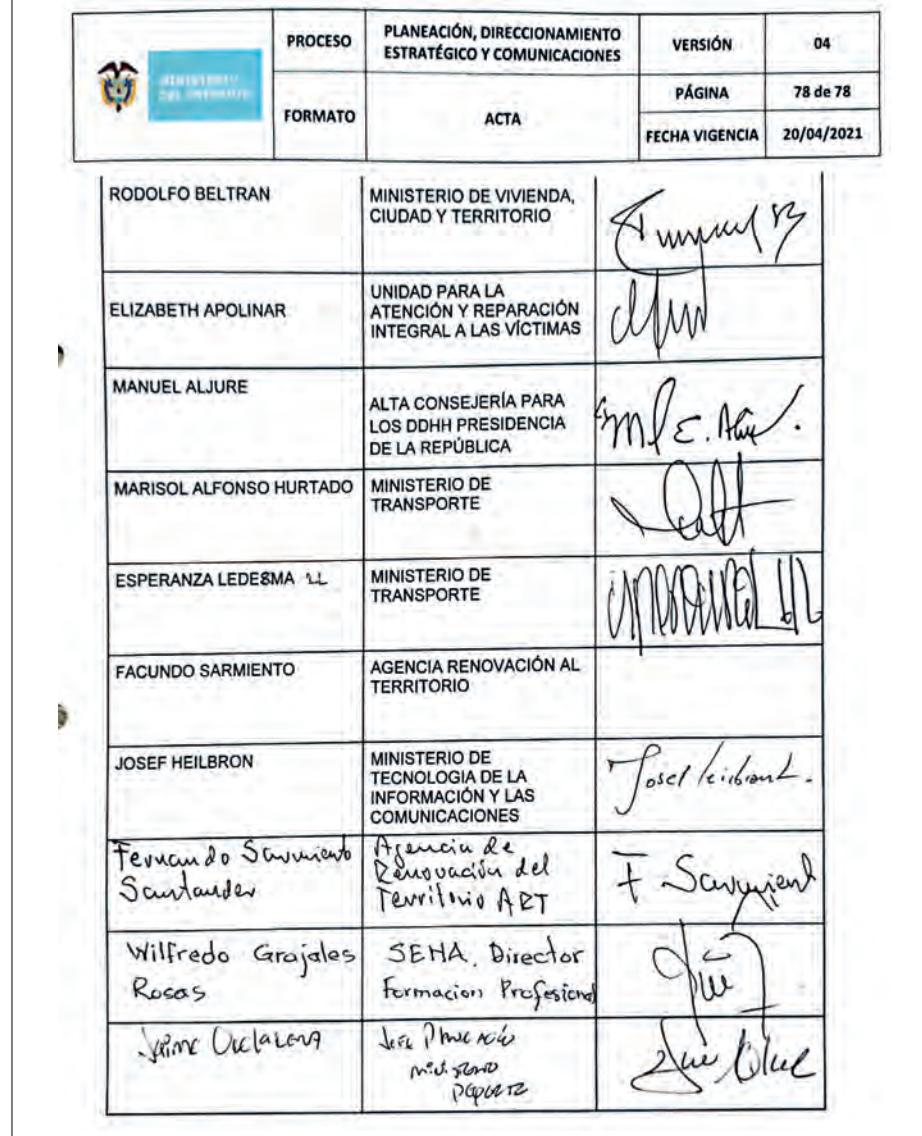 PROCESO
PLANEACIÓN, DIRECCIONAMIENTO
ESTRATÉGICO Y COMUNICACIONES
VERSIÓN
04
MINISTERIO
DEL INTERIOR
FORMATO
ACTA
PÁGINA
78 de 78
FECHA VIGENCIA
20/04/2021
RODOLFO BELTRAN
MINISTERIO DE VIVIENDA,
CIUDAD Y TERRITORIO
ELIZABETH APOLINAR
UNIDAD PARA LA
ATENCIÓN Y REPARACIÓN
INTEGRAL A LAS VÍCTIMAS
MANUEL ALJURE
ALTA CONSEJERÍA PARA
LOS DDHH PRESIDENCIA
DE LA REPÚBLICA
MARISOL ALFONSO HURTADO
MINISTERIO DE
TRANSPORTE
ESPERANZA LEDESMA LL
MINISTERIO DE
TRANSPORTE
FACUNDO SARMIENTO
AGENCIA RENOVACIÓN AL
TERRITORIO
JOSEF HEILBRON
MINISTERIO DE
TECNOLOGIA DE LA
INFORMACIÓN Y LAS
COMUNICACIONES
Fernando Sarmiento
Santander
Agencia de
Renovación del
Territorio ART
F. Sarmient
Wilfredo Grajales
Rosas
SENA. Director
Formacion Profesional
Jaime